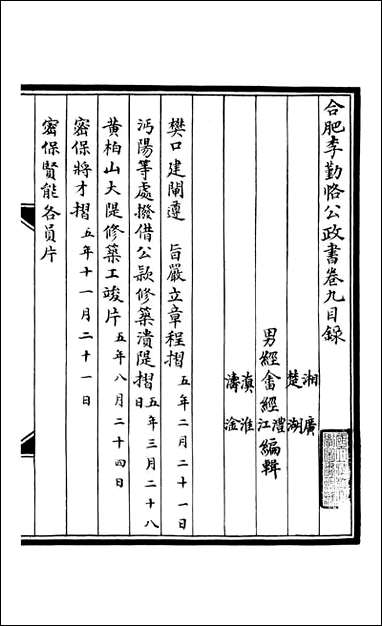 合肥李勤恪公政書卷九目録
湘 廣
楚 湖
男經畬經澧江編輯
滇 淮
濤 淦
樊口建閘遵 旨嚴立章程摺 五年二月二十一日
沔陽等處撥借公款修築潰隄摺 五年三月二十八日
黃柏山大隄修築工竣片 五年八月二十四日
密保將才摺 五年十一月二十一日
密保賢能各員片